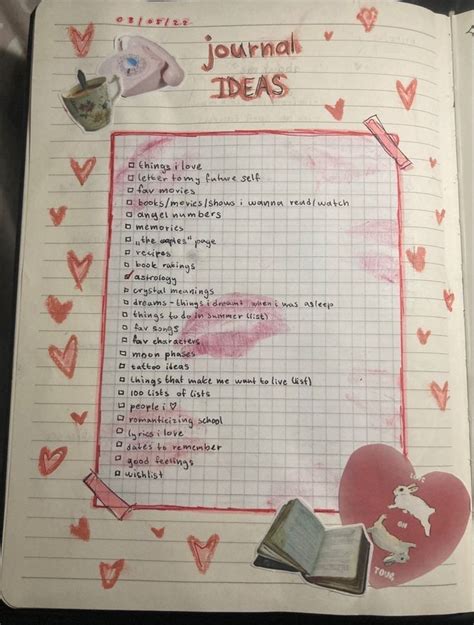 02/05/22
journal
IDEAS
things i love
letter to my future self
fav movies
books/movies/shows i wanna read/watch
angel numbers
memories
„the" page
recipes
book ratings
astrology
crystal meanings
dreams - things i dreamt when i was asleep
things to do in summer (list)
fav songs
fav characters
moon phases
tattoo ideas
things that make me want to live (list)
100 lists of lists
people i ♡
romanticizing school
lyrics i love
dates to remember
good feelings
wishlist
LOVE
ON
TOUR